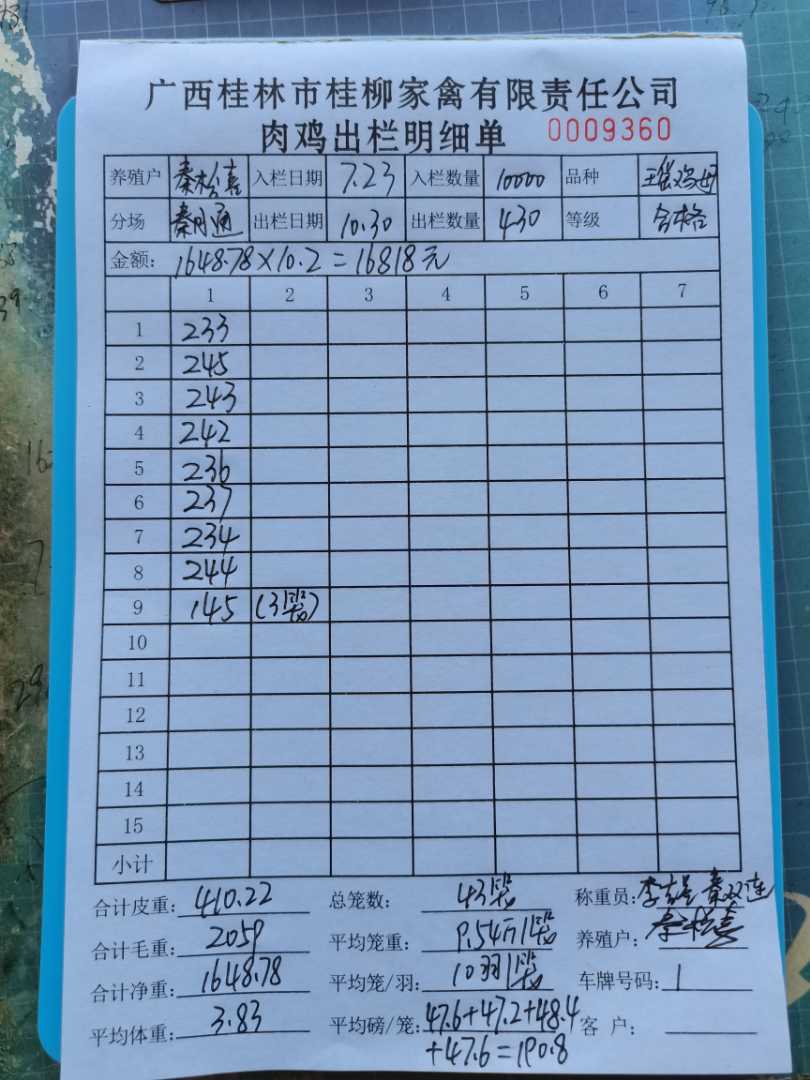 广西桂林市桂柳家禽有限责任公司
肉鸡出栏明细单 0009360
养殖户 秦松喜 入栏日期 7.23 入栏数量 10000 品种 鸡母
分场 秦月通 出栏日期 10.30 出栏数量 430 等级 合格
金额: 1648.78×10.2=16818元
1 2 3 4 5 6 7
1 233
2 245
3 243
4 242
5 236
6 237
7 234
8 244
9 145 (3笼)
10
11
12
13
14
15
小计
合计皮重: 410.22 总笼数: 43笼 称重员:
合计毛重: 2059 平均笼重: 9.54斤/笼 养殖户:
合计净重: 1648.78 平均笼/羽: 10羽/笼 车牌号码: 1
平均体重: 3.83 平均磅/笼: 47.6+47.2+48.4 客 户:
+47.6=190.8